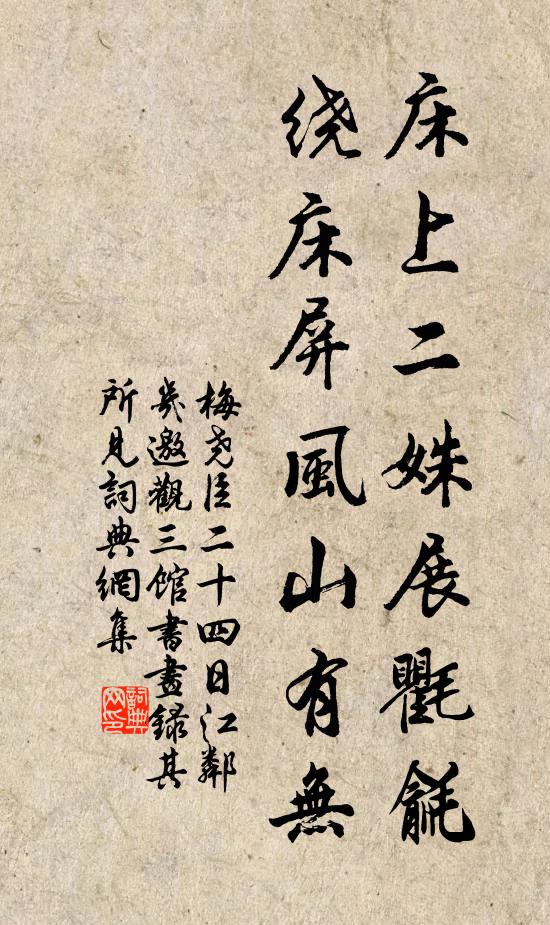 床上二姝展氍毹
绕床屏風山有無
梅尧臣二十四日江鄰
幾邀觀三館書畫録其
所見詞典網集
詞典网印